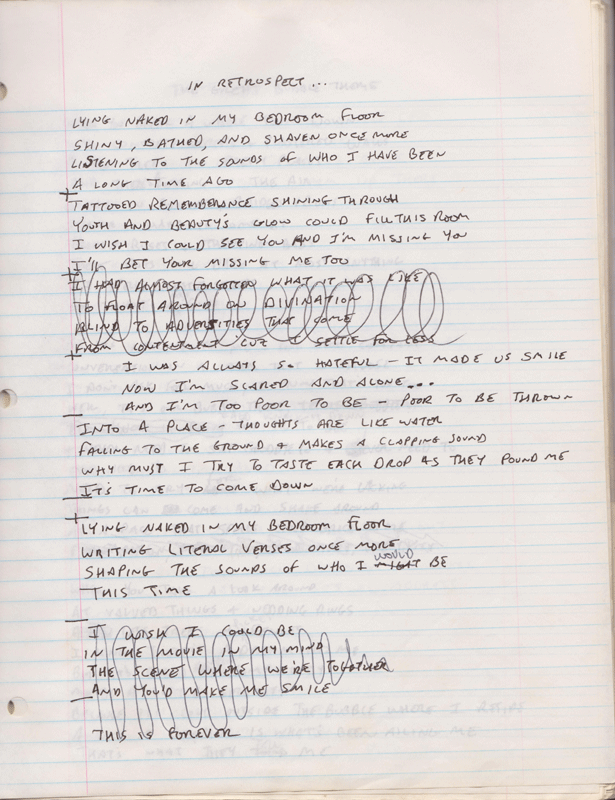 IN RETROSPECT...
LYING NAKED IN MY BEDROOM FLOOR
SHINY, BATHED, AND SHAVEN ONCE MORE
LISTENING TO THE SOUNDS OF WHO I HAVE BEEN
A LONG TIME AGO
TATTOOED REMEMBERANCE SHINING THROUGH
YOUTH AND BEAUTY'S GLOW COULD FILL THIS ROOM
I WISH I COULD SEE YOU AND I'M MISSING YOU
I'LL BET YOUR MISSING ME TOO
I HAD ALMOST FORGOTTEN WHAT IT WAS LIKE
TO FLOAT AROUND ON DIVINATION
BLIND TO ADVERSITIES THAT COME
FROM CONTENTMENT CUZ I SETTLE FOR LESS
I WAS ALWAYS SO HATEFUL - IT MADE US SMILE
NOW I'M SCARED AND ALONE...
AND I'M TOO POOR TO BE - POOR TO BE THROWN
INTO A PLACE - THOUGHTS ARE LIKE WATER
FALLING TO THE GROUND + MAKES A CLAPPING SOUND
WHY MUST I TRY TO TASTE EACH DROP AS THEY POUND ME
IT'S TIME TO COME DOWN
LYING NAKED IN MY BEDROOM FLOOR
WRITING LITERAL VERSES ONCE MORE
SHAPING THE SOUNDS OF WHO I MIGHT WOULD BE
THIS TIME
I WISH I COULD BE
IN THE MOVIE IN MY MIND
THE SCENE WHERE WE'RE TOGETHER
AND YOU'D MAKE ME SMILE
THIS IS FOREVER